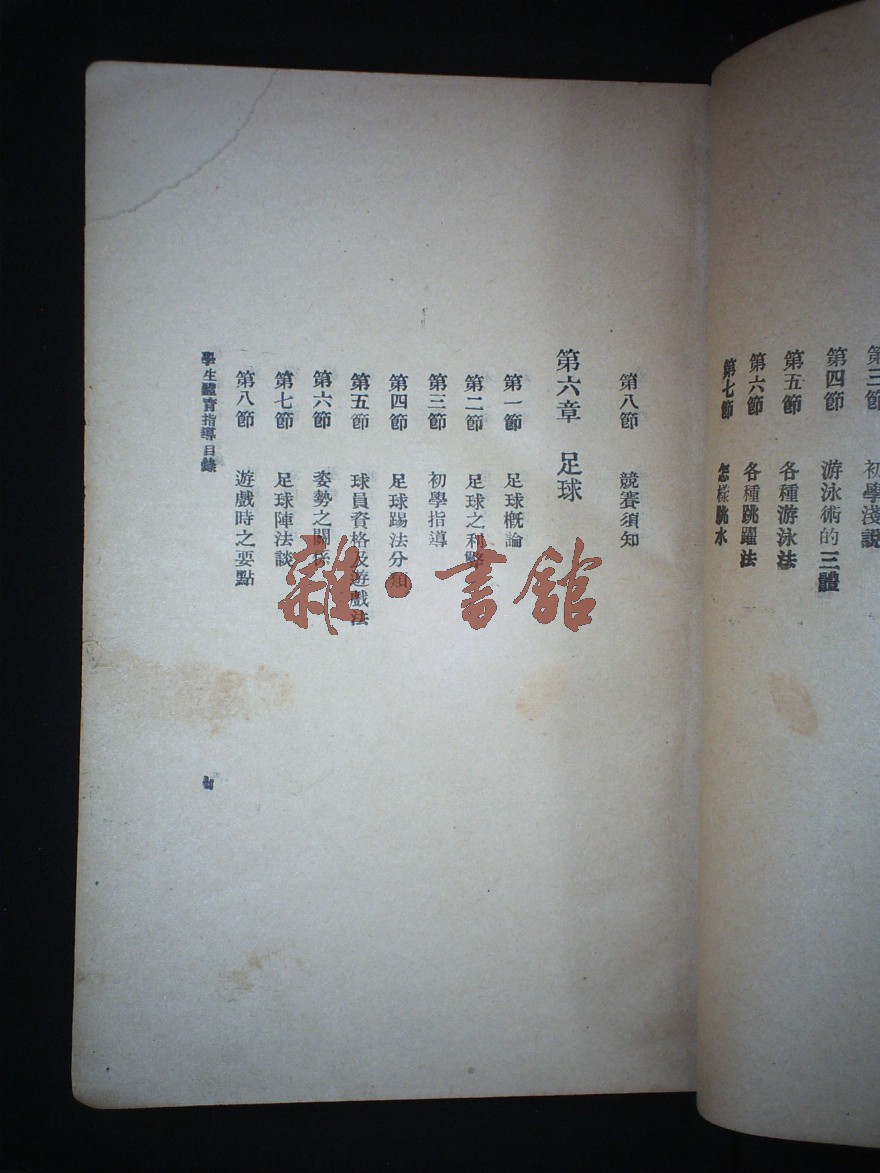 第三節 初學淺說
第四節 游泳術的三體
第五節 各種游泳法
第六節 各種跳躍法
第七節 怎樣跳水
第八節 競賽須知
第六章 足球
第一節 足球概論
第二節 足球之利弊
第三節 初學指導
第四節 足球踢法分類
第五節 球員資格及遊戲法
第六節 姿勢之關係
第七節 足球陣法談
第八節 遊戲時之要點
學生體育指導目錄
七
雜·書館